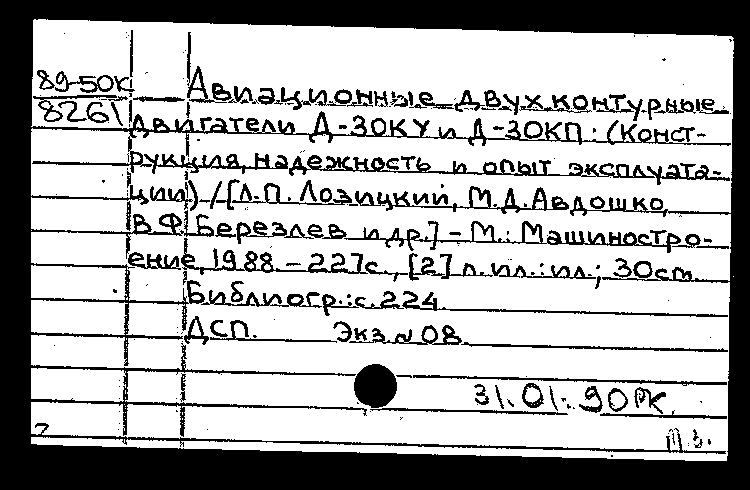 89-50К
8261
Авиационные двухконтурные
двигатели Д-30КУ и Д-30КП: (Конст-
рукция, надежность и опыт эксплуата-
ции) / [Л.П. Лозицкий, М.Д. Авдошко,
В.Ф. Березлев и др.] - М.: Машиностро-
ение, 1988. - 227с., [2] л. ил.: ил.; 30см.
Библиогр.: с. 224.
ДСП. Экз. № 08.
31.01.90